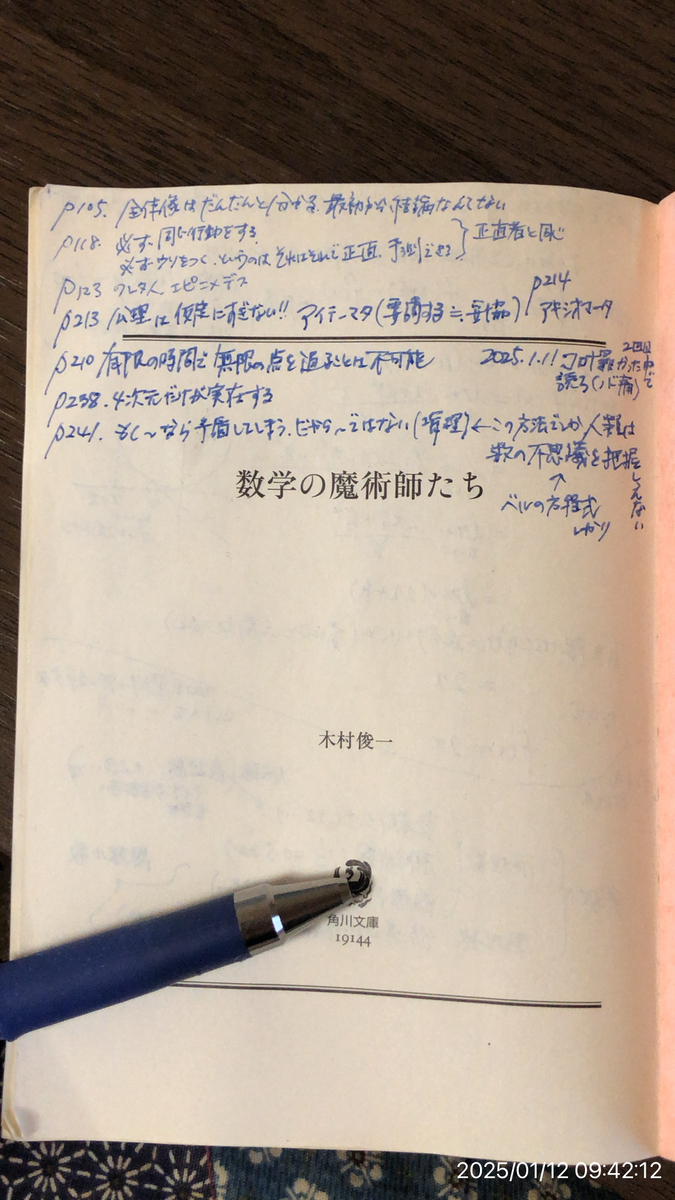 p105. 全体像はだんだんと分かる. 最初から結論なんてない
p118. 必ず同じ行動をする
必ずウソをつく、というのは それはそれで正直. 予測できる } 正直者と同じ
p123 クレタ人 エピニメデス
p213 公理は仮定にすぎない!! アイテーマタ(要請する≒妥協)
p214 アキシオマータ
p210 有限の時間で無限の点を辿ることは不可能
2025.1.11 コロナ罹かった中で
2回目
読了(ノド痛)
p238. 4次元だけが実在する
p241. もし〜なら矛盾してしまう. だから〜ではない(背理) ← この方法でしか人類は
数の不思議を把握しえない
↑
ペルの方程式
しかり
数学の魔術師たち
木村俊一
角川文庫
19144
2025/01/12 09:42:12